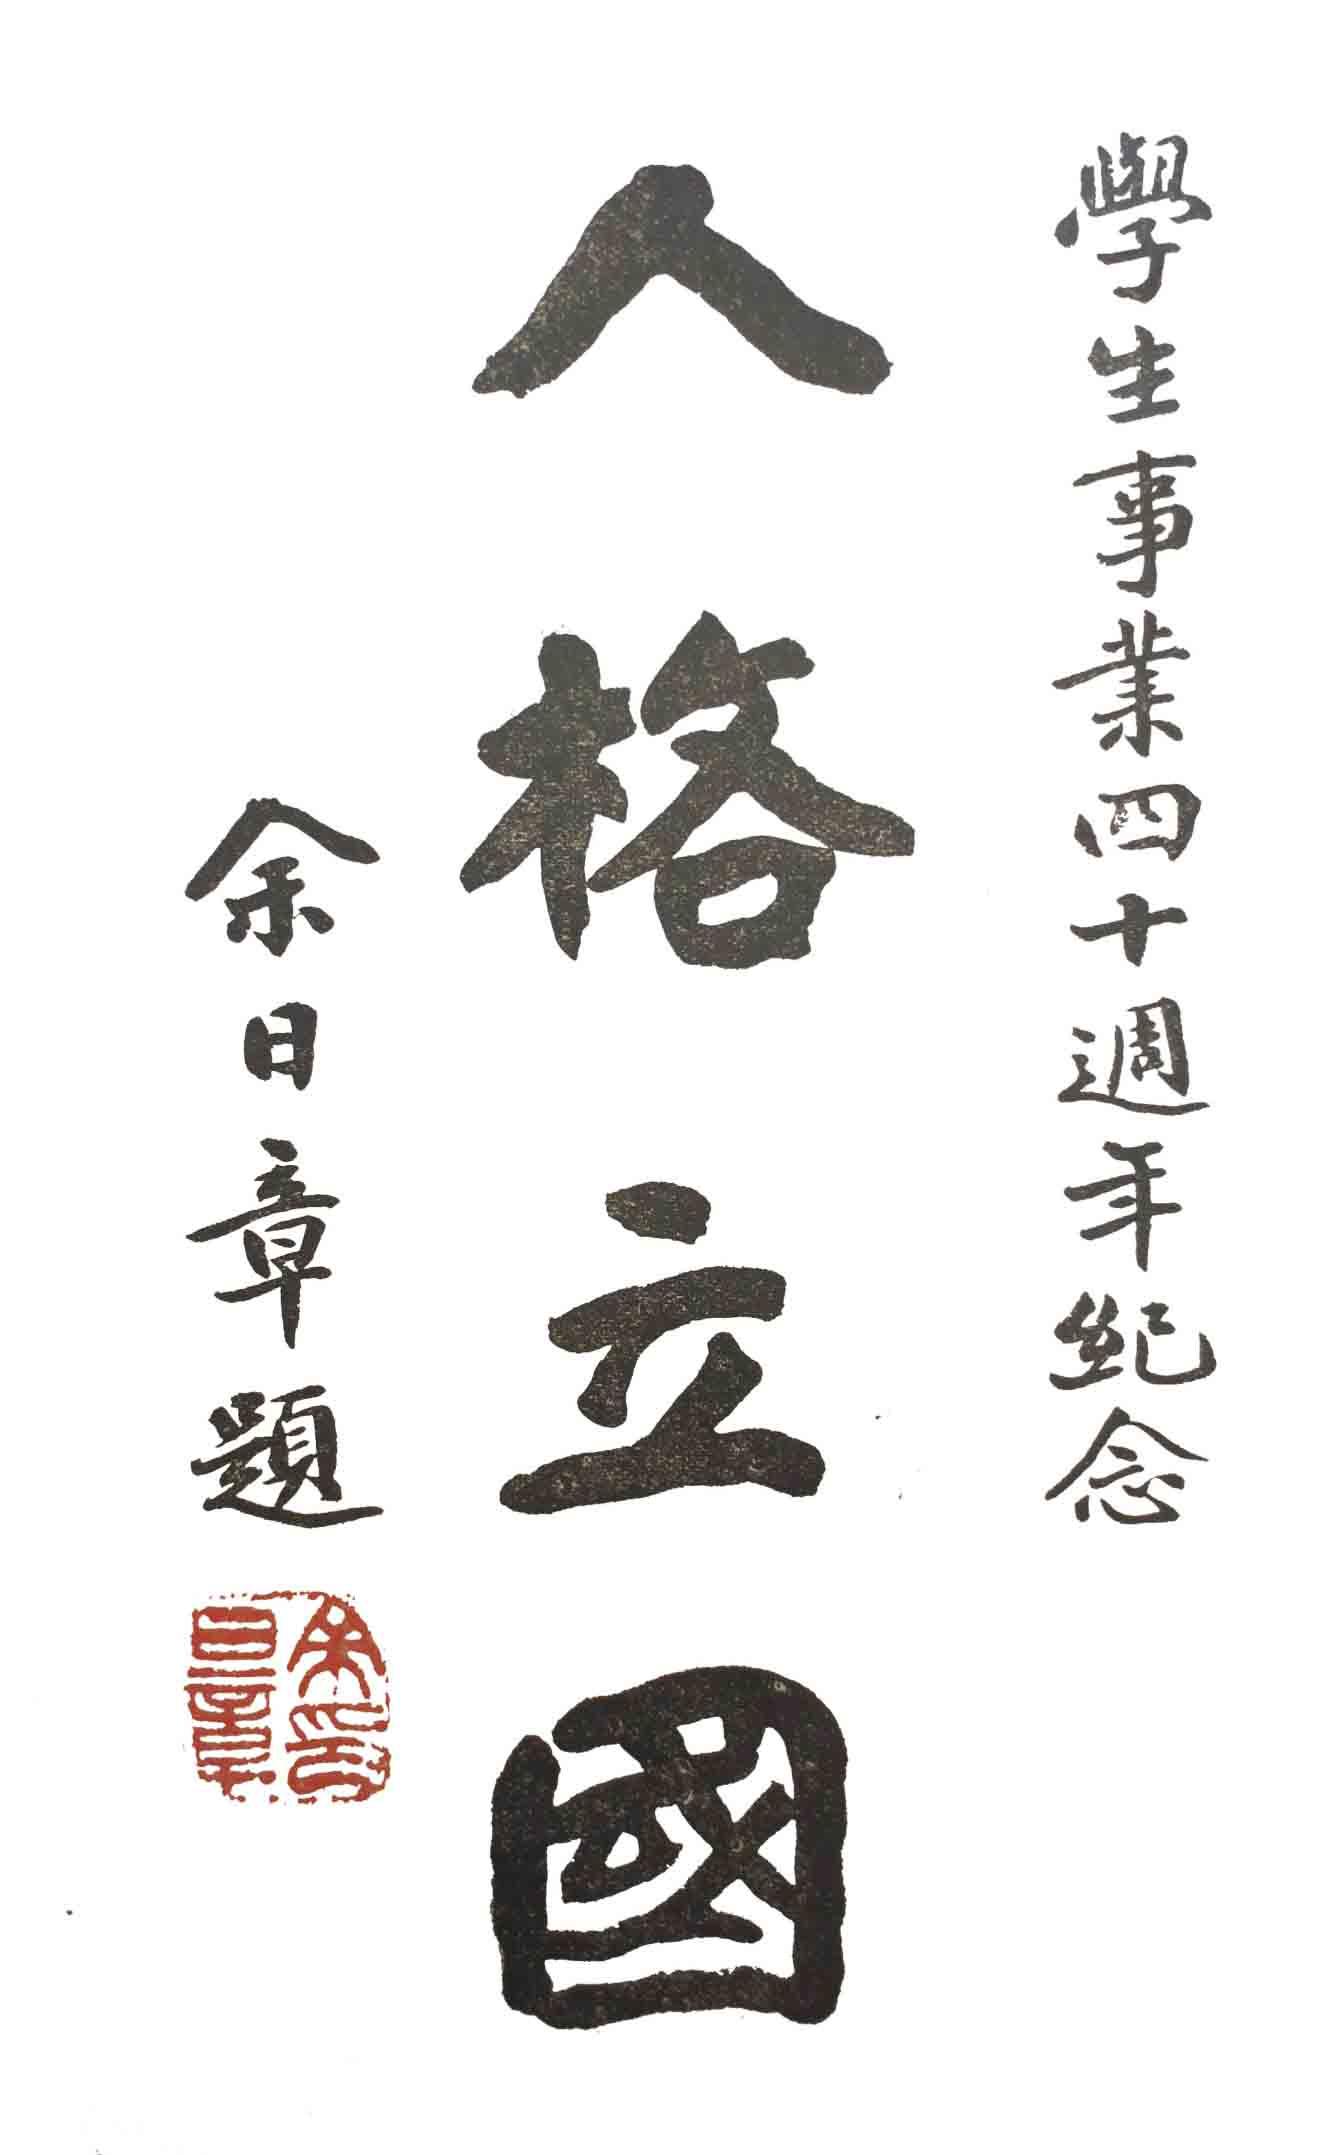 學生事業四十週年紀念
人格立國
余日章題
余日章印